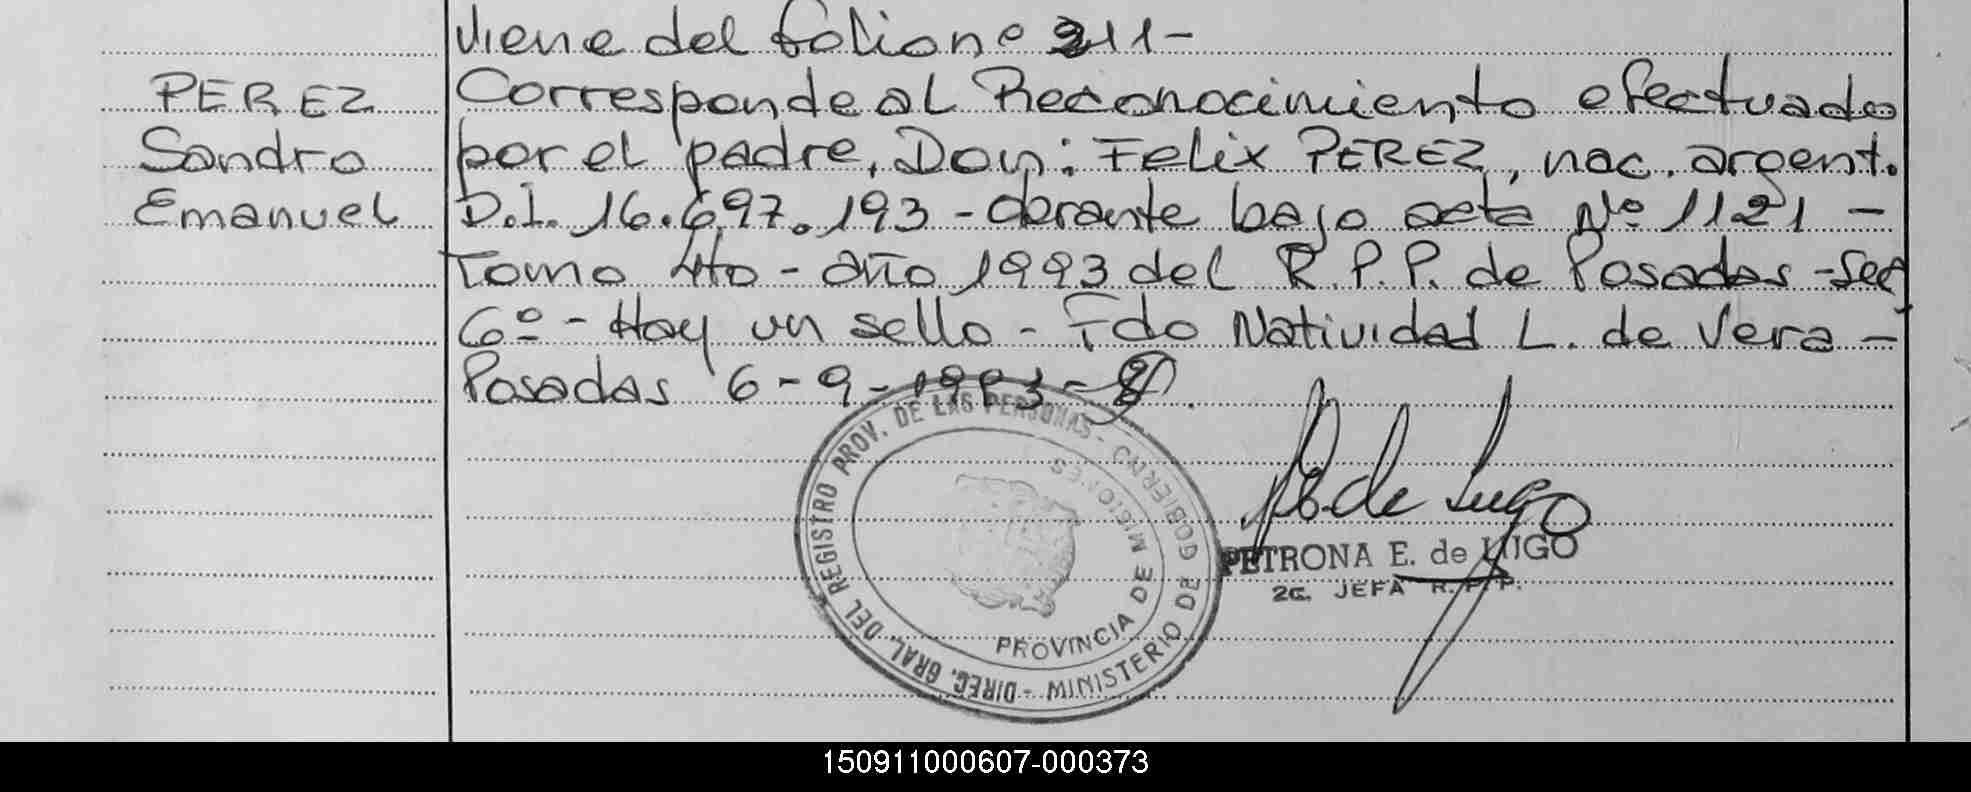 viene del folio nº 211-
PEREZ Corresponde al Reconocimiento efectuado
Sandro por el padre, Don: Felix PEREZ, nac. argent.
Emanuel D.I. 16.697.193 - obrante bajo acta Nº 1121 -
Tomo 4to - año 1993 del R.P.P. de Posadas - Sec
6º - Hay un sello - Fdo Natividad L. de Vera -
Posadas 6-9-1993-
DIREC. GRAL. DEL REGISTRO PROV. DE LAS PERSONAS -
MINISTERIO DE GOBIERNO
PROVINCIA DE MISIONES
P. de Lugo
PETRONA E. de LUGO
2a. JEFA R.P.P.
150911000607-000373